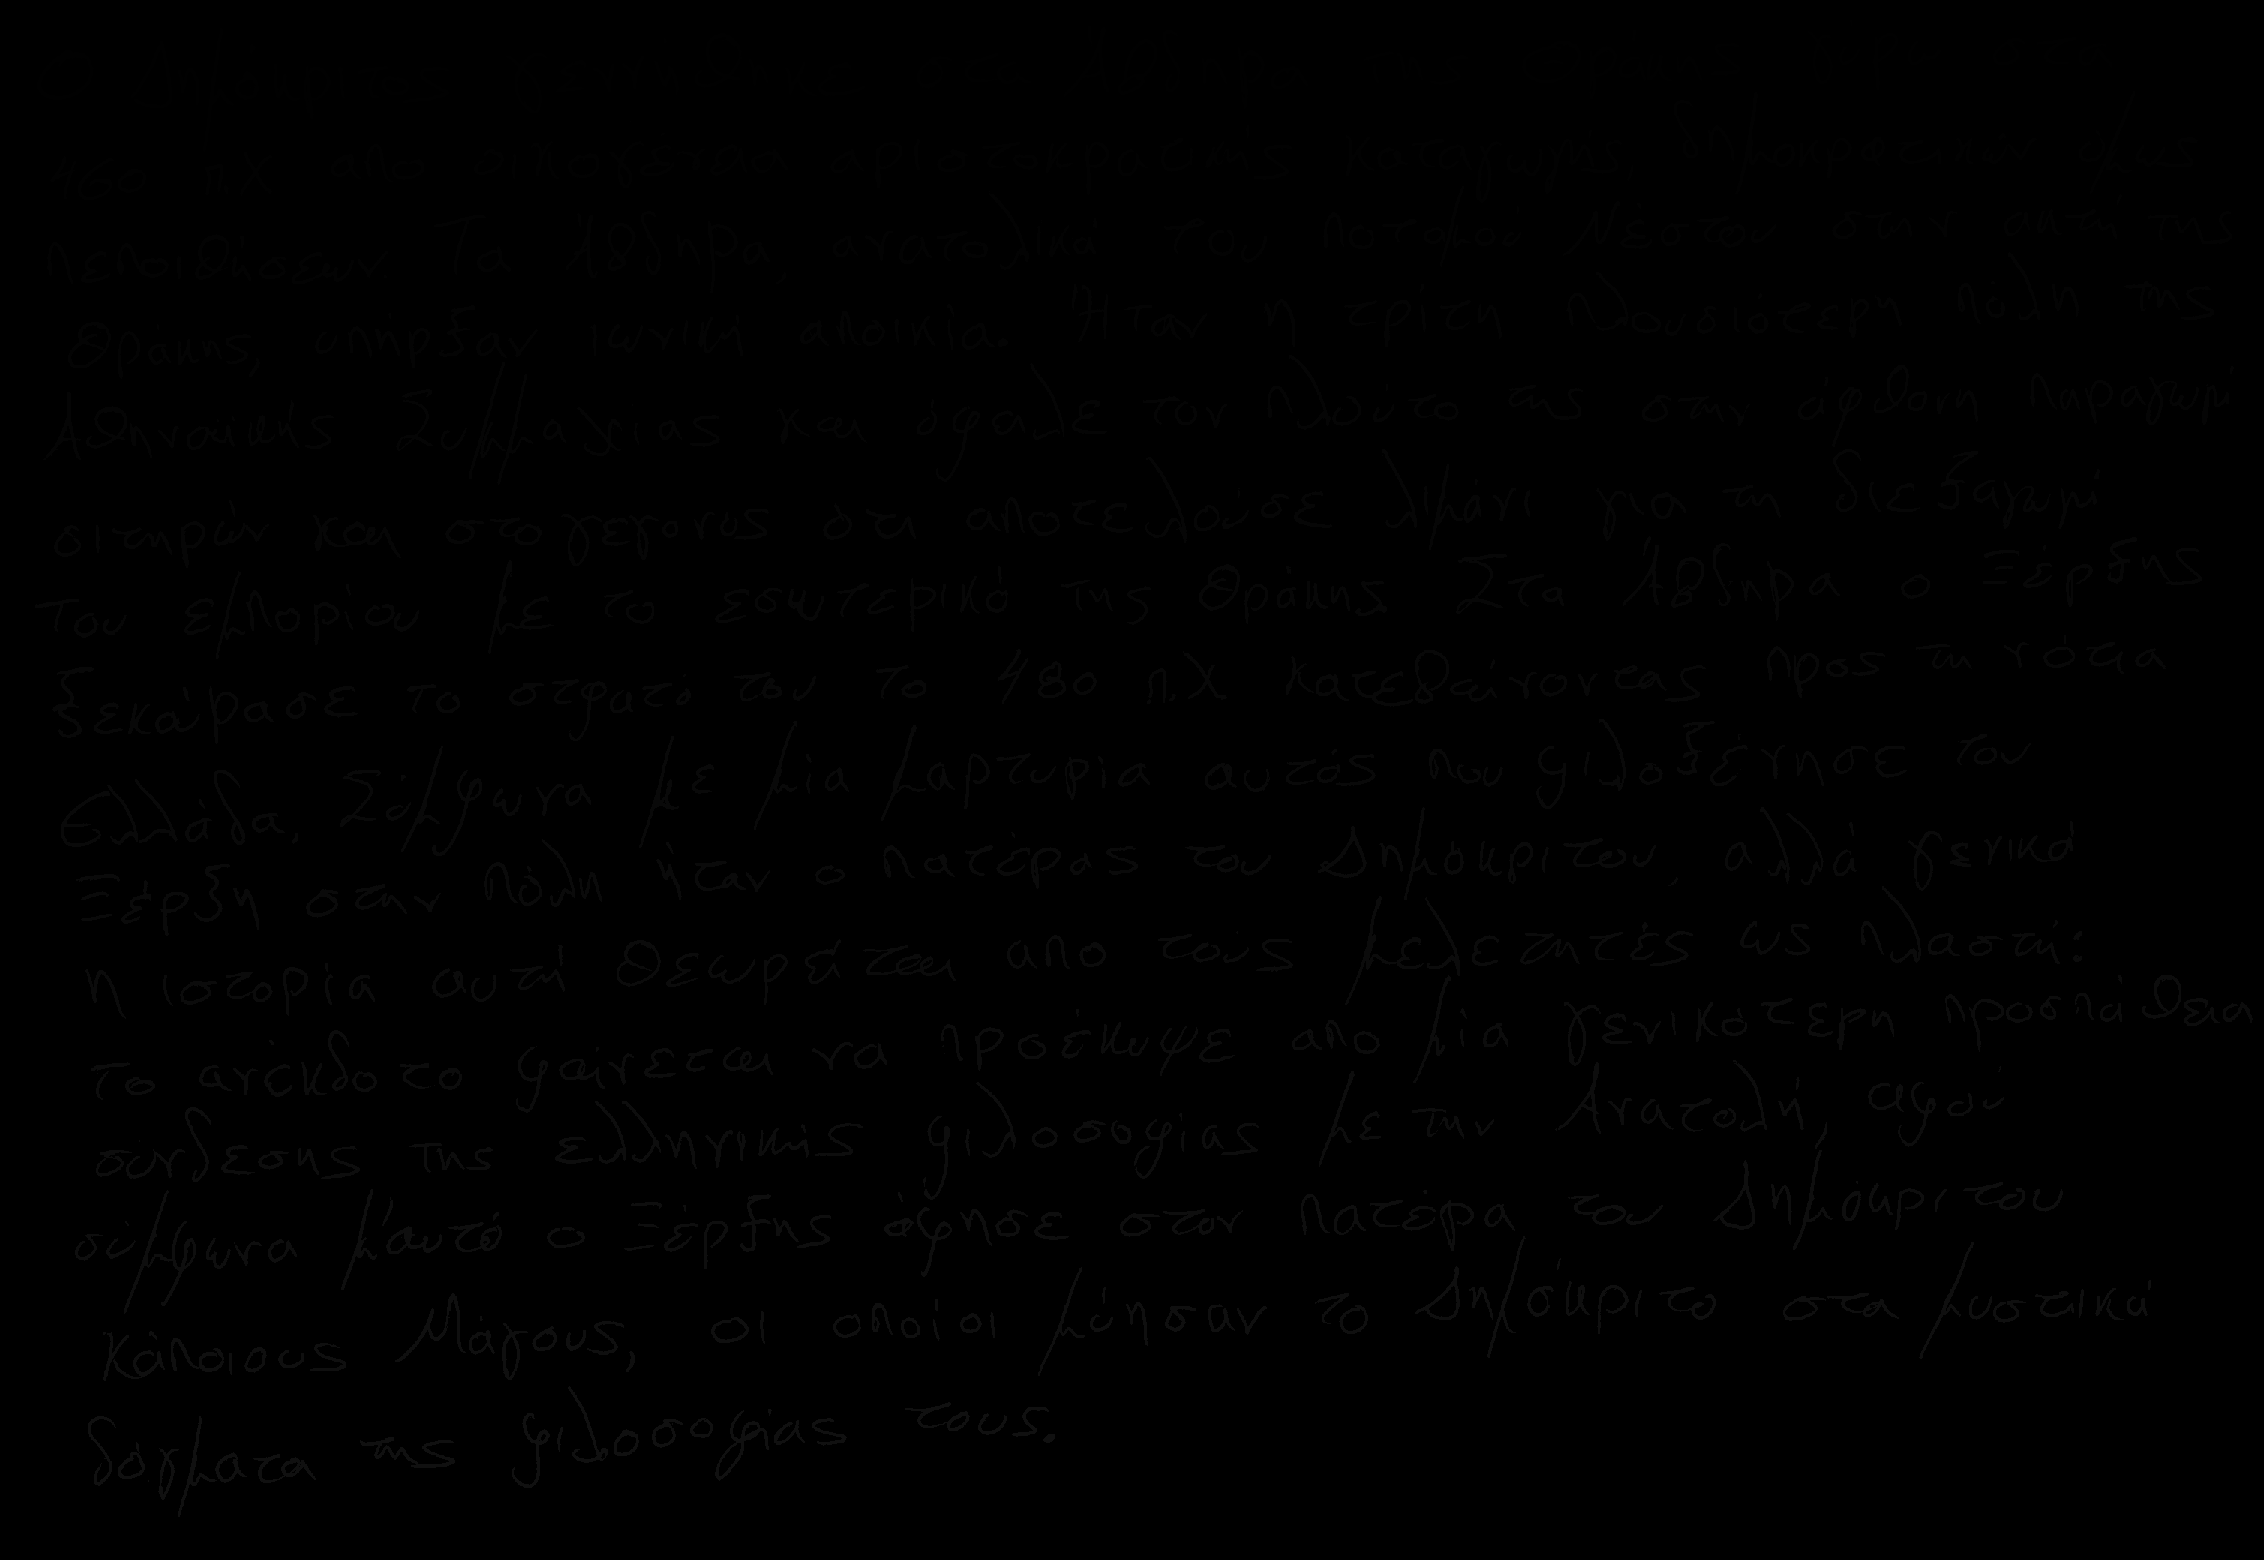 460 π.Χ απο οικογένεια αριστοκρατικής καταγωγής, δημοκρατικών όμως
πεποιθήσεων. Τα Άβδηρα, ανατολικά του ποταμού Νέστου στην ακτή της
Θράκης, υπήρξαν ιωνική αποικία. Ήταν η τρίτη πλουσιότερη πόλη της
Αθηναϊκής Συμμαχίας και όφειλε τον πλούτο της στην άφθονη παραγωγή
σιτηρών και στο γεγονός ότι αποτελούσε λιμάνι για τη διεξαγωγή
του εμπορίου με το εσωτερικό της Θράκης. Στα Άβδηρα ο Ξέρξης
ξεκούρασε το στρατό του το 480 π.Χ κατεβαίνοντας προς τη νότια
Ελλάδα. Σύμφωνα με μία μαρτυρία αυτός που φιλοξένησε τον
Ξέρξη στην πόλη ήταν ο πατέρας του Δημόκριτου, αλλά γενικά
η ιστορία αυτή θεωρείται απο τούς μελετητές ως πλαστή:
το ανέκδοτο φαίνεται να προέκυψε απο μία γενικότερη προσπάθεια
σύνδεσης της ελληνικής φιλοσοφίας με την Ανατολή, αφού
σύμφωνα μ'αυτό ο Ξέρξης άφησε στον πατέρα του Δημόκριτου
κάποιους Μάγους, οι οποίοι μύησαν το Δημόκριτο στα μυστικά
δόγματα της φιλοσοφίας τους.